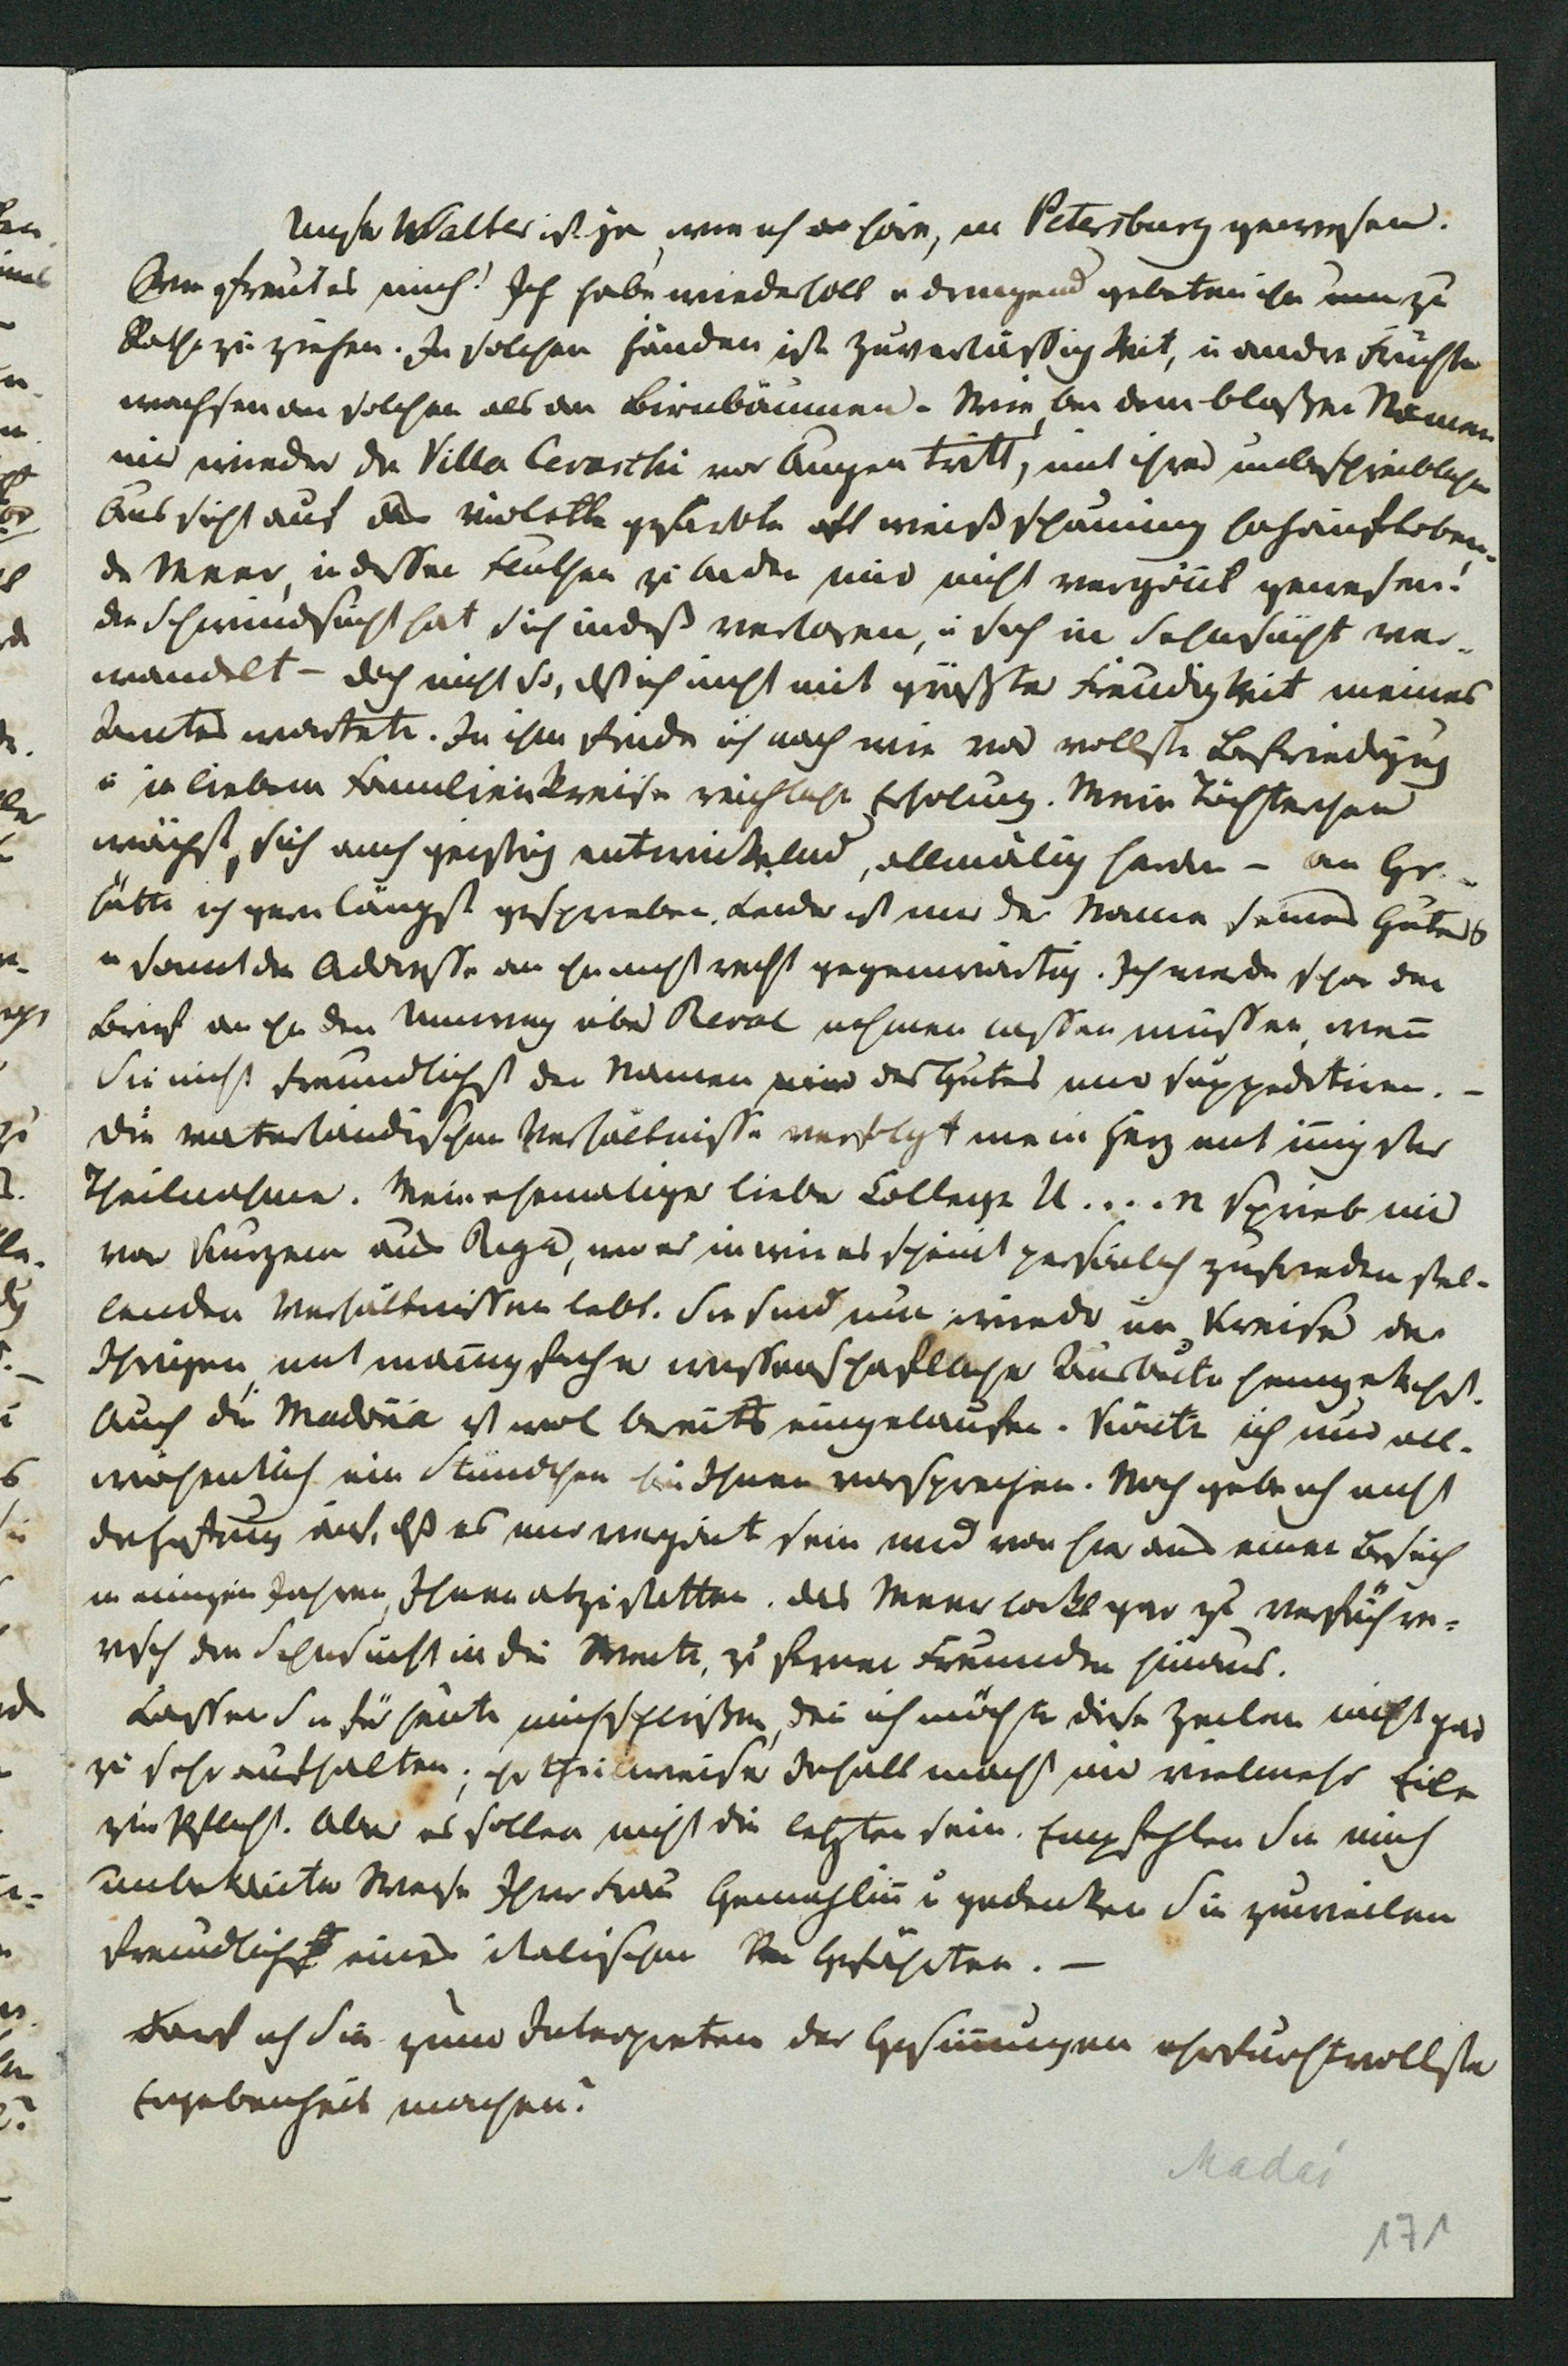 Unser Walter ist ja, wie ich höre, in Petersburg gewesen.
Wie gfreut es mich! Ich habe wiederholt u dringend gebeten ihn nun zu
Rathe zu ziehen. In solchen Händen ist Zuverlässigkeit, u andre Früchte
wachsen an solchen als an Birnbäumen. Wie, bei dem bloßen Namen
mir wieder die Villa Ceraschi vor Augen tritt, mit ihrer unbeschreiblichen
Aussicht auf das violette gefärbte oft weiß schäumig hoch aufloben-
de Meer, in dessen Fluthen zu baden mir nicht vergönt gewesen!
die Schwindsucht hat sich indeß verloren, u sich in Sehnsucht ver-
wandelt – doch nicht so, dß ich nicht mit größter Freudigkeit meines
Amtes wartete. In ihm finde ich nach wie vor vollste Befriedigung
u in liebem Familienkreise reichliche Erholung. Mein Töchterchen
wächst, sich auch geistig entwickelnd, allmälig heran – an Gr.
hätte ich gern längst geschrieben. Leider ist mir der Name seines Gutes
u somit die Addresse an ihn nicht recht gegenwärtig. Ich werde schon den
Brief an ihn den Umweg über Reval nehmen lassen müssen, wenn
Sie nicht freundlichst den Namen des Gutes mir suppeditiren. –
Die vaterländischen Verhältnisse verfolgt mein Herz mit innigster
Theilnahme. Mein ehemaliger lieber College U....n schrieb mir
vor Kurzem aus Riga, wo er in wie es scheint persönlich zufrieden stel-
lenden Verhältnissen lebt. Sie sind nun wieder im Kreise der
Ihrigen, mit mannigfacher wissenschaftlicher Ausbeute heimgekehrt.
Auch die Madonna ist wol bereits eingelaufen. Könte ich nur all-
wöchentlich ein Stündchen bei Ihnen vorsprechen. Noch gebe ich nicht
die Hoffnung auf, dß es mir vergönt sein wird von hier aus einen Besuch
in einigen Jahren, Ihnen abzustatten. Das Meer lockt gar zu verführe-
risch die Sehnsucht in die Weite, zu fernen Freunden hinaus.
Lassen Sie für heute mich schließen, den ich möchte diese Zeilen nicht gar
zu sehr aufhalten; ihr theilweiser Inhalt macht mir vielmehr Eile
zur Pflicht. Aber es sollen nicht die letzten sein. Empfehlen Sie mich
unbekanter Weise Ihrer Frau Gemahlinn u gedenken Sie zuweilen
freundlichst eines italischen Gefährten. –
Darf ich Sie zum Interpreten der Gesinnungen ehrfurchtvollster
Ergebenheit machen?
Madai
171